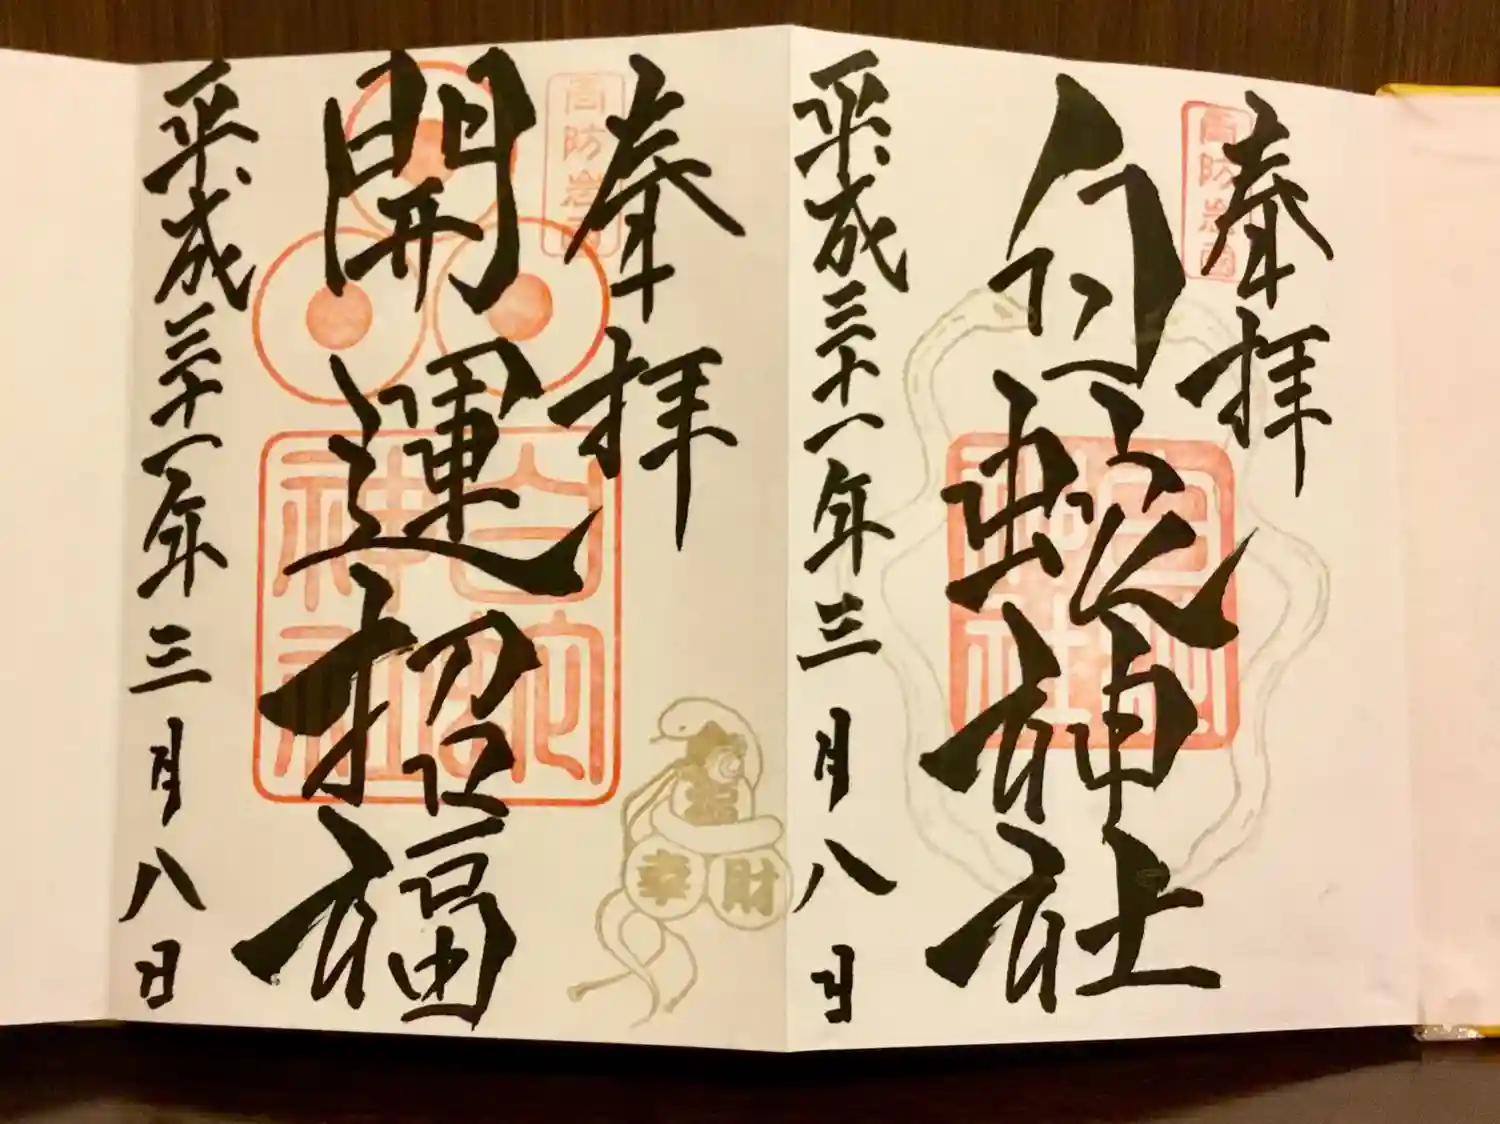 奉拝
白蛇神社
平成三十一年三月八日
周防岩国
白蛇神社
奉拝
開運招福
平成三十一年三月八日
周防岩国
白蛇神社
幸
財